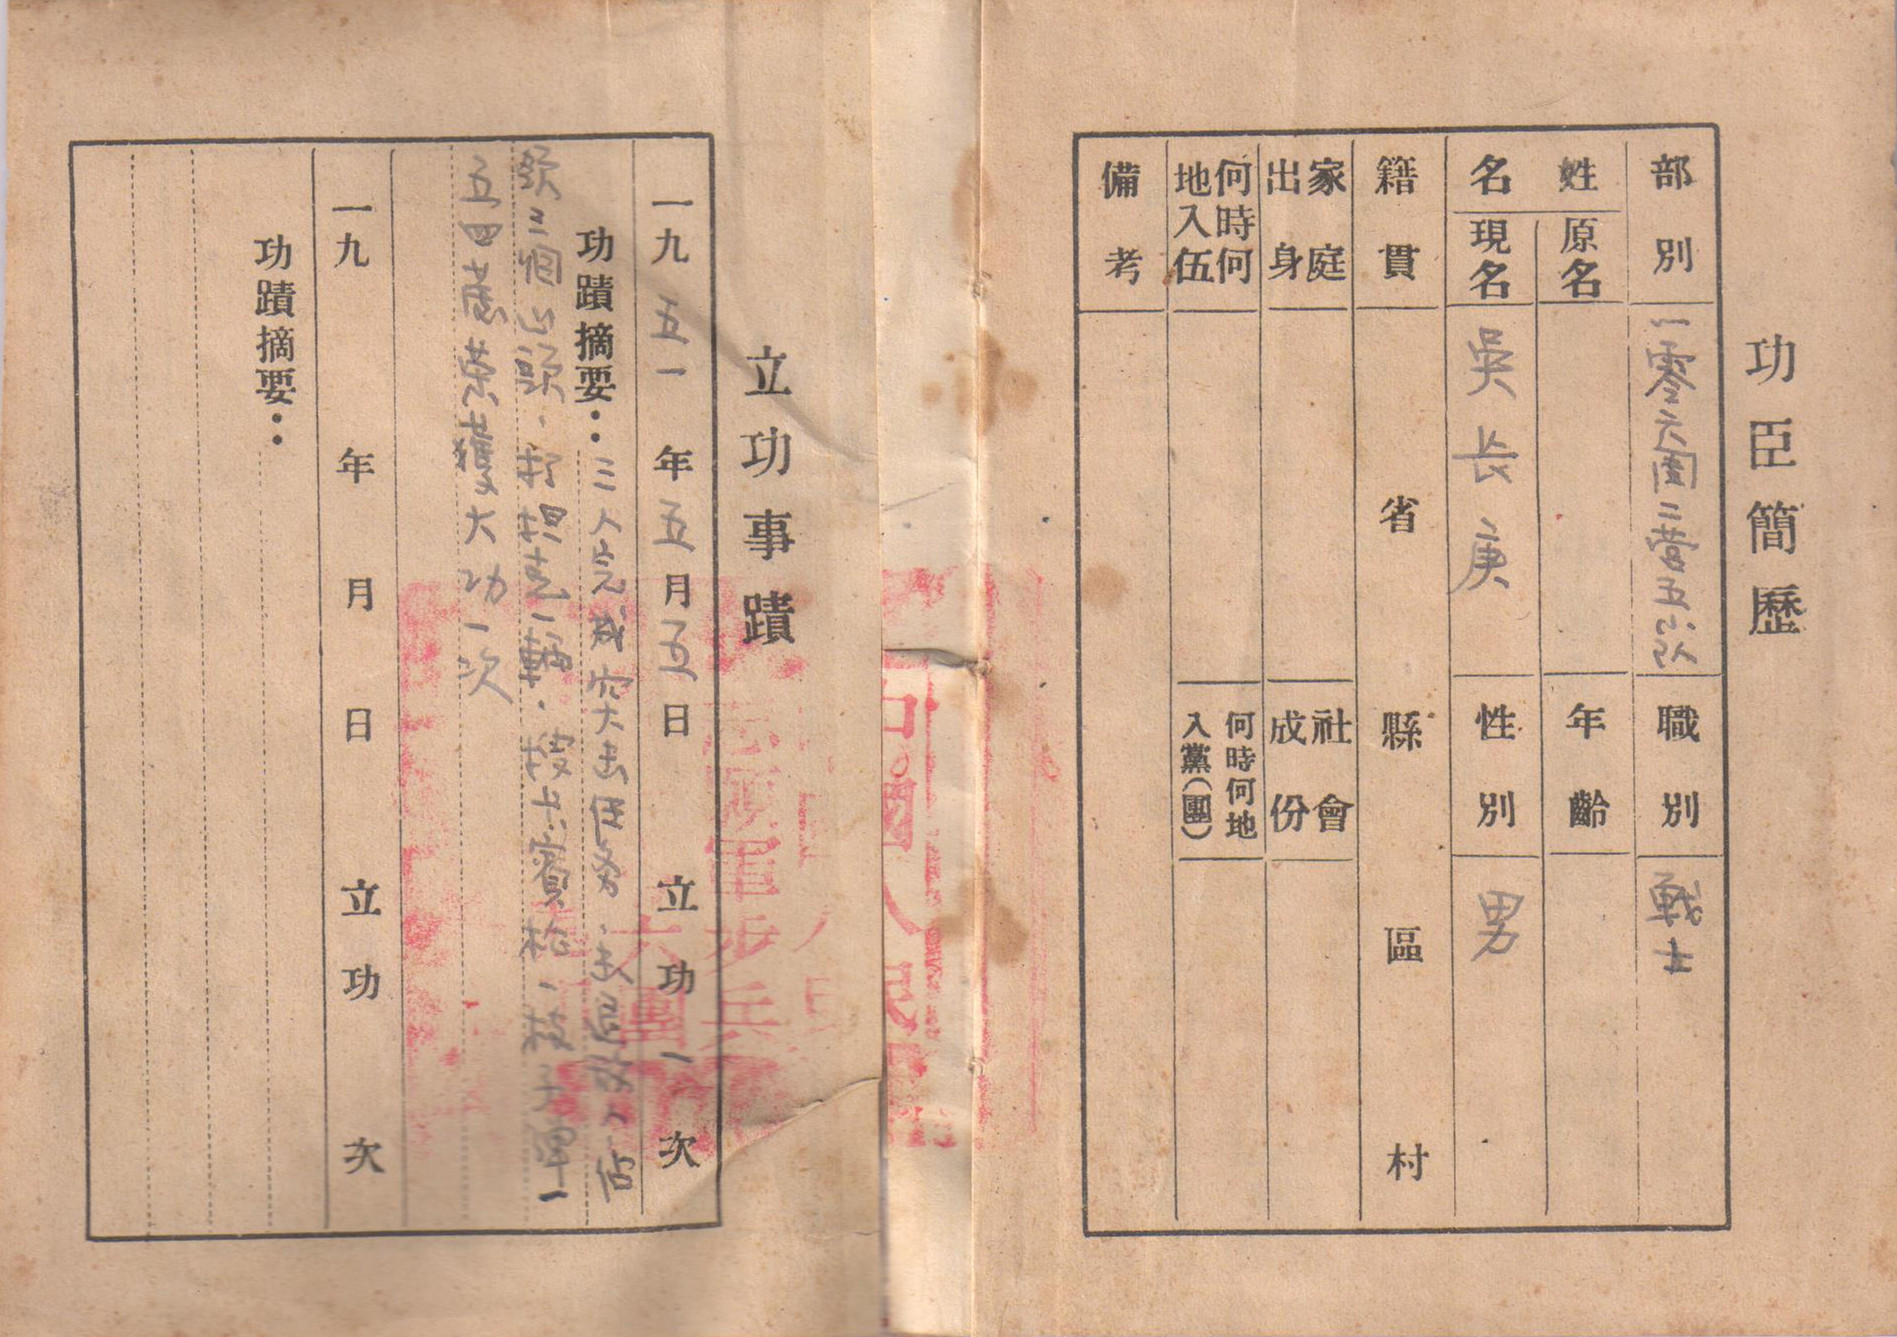 功臣簡歷
部別 一零六團二營五小队 職別 战士
姓名 原名 年齡
現名 吳長庚 性別 男
籍貫 省 縣 區 村
家庭出身 社會成份
何時何地入伍 何時何地入黨(團)
備考
立功事蹟
一九五一年五月五日 立功一次
功蹟摘要：三人完成突击任务．击后敌人佔
领三個山頭．打坦克一輛．搜
五四
荣獲大功一次
一九 年 月 日 立功 次
功蹟摘要：
中國人民
志願軍步兵
六團